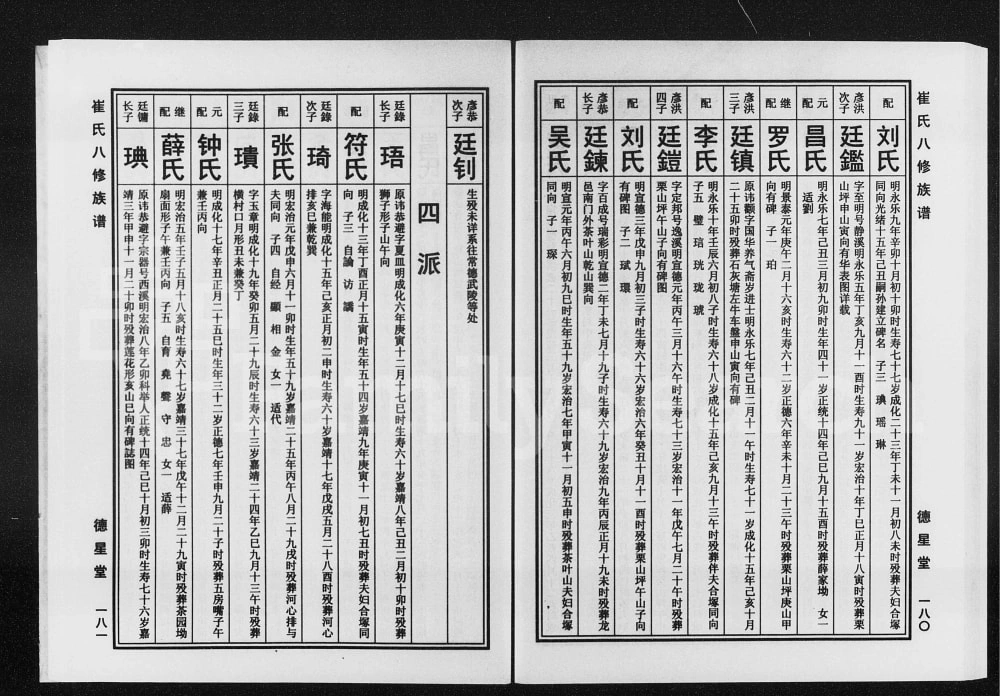 崔氏八修族谱
德星堂
一八〇
配
刘氏
明永乐九年辛卯十月初十卯时生寿七十七岁成化二十三年丁未十一月初八未时殁葬夫妇合塚
同向光绪十五年己丑嗣孙建立碑名 子三 琠 瑶 琳
彦洪
次子
廷鑑
字至明号静溪明永乐五年丁亥九月十一酉时生寿九十一岁宏治十年丁巳正月十八寅时殁葬栗
山坪申山寅向有华表图详载
元
配
昌氏
明永乐七年己丑三月初九卯时生年四十一岁正统十四年己巳九月十五酉时殁葬薛家坳 女一
适劉
继
配
罗氏
明景泰元年庚午二月十六亥时生寿六十二岁正德六年辛未十月二十三午时殁葬栗山坪庚山甲
向有碑 子一 珀
彦洪
三子
廷镇
原讳颧字国华养气斋岁进士明永乐七年己丑二月十一午时生寿七十一岁成化十五年己亥十月
二十五卯时殁葬石灰塘左牛车盤申山寅向有碑
配
李氏
明永乐十年壬辰六月初八子时生寿六十八岁成化十五年己亥九月十三午时殁葬伴夫合塚同向
子五 璧 琂 珖 珑 琥
彦洪
四子
廷鎧
字定邦号逸溪明宣德元年丙午三月十六午时生寿七十三岁宏治十一年戊午七月二十午时殁葬
栗山坪午山子向有碑图
配
刘氏
明宣德三年戊申九月初三子时生寿六十六岁宏治六年癸丑十月十一酉时殁葬栗山坪午山子向
有碑图 子二 斌 環
彦恭
长子
廷鍊
字百成号瑞彩明宣德二年丁未七月十九子时生寿六十九岁宏治九年丙辰正月十九未时殁葬龙
邑南门外茶叶山乾山巽向
配
吴氏
明宣元年丙午六月初九巳时生年五十九岁宏治七年甲寅十一月初五申时殁葬茶叶山夫妇合塚
同向 子一 琛
彦恭
次子
廷钊
生殁未详系往常德武陵等处
四派
廷錄
长子
珸
原讳恭避字夏皿明成化六年庚寅十二月十七巳时生寿六十岁嘉靖八年己丑二月初十卯时殁葬
狮子形子山午向
配
符氏
明成化十三年丁酉正月十五寅时生年五十四岁嘉靖九年庚寅十一月初七丑时殁葬夫妇合塚同
向 子三 自論 访 議
廷錄
次子
琦
字海能明成化十五年己亥正月初二申时生寿六十岁嘉靖十七年戊戌五月二十八酉时殁葬河心
排亥巳兼乾巽
配
张氏
明宏治元年戊申六月十一卯时生年五十九岁嘉靖二十五年丙午八月二十九戌时殁葬河心排与
夫同向 子四 自经 顯 相 金 女一 适代
廷錄
三子
瓆
字玉章明成化十九年癸卯五月二十九辰时生寿六十三岁嘉靖二十四年乙巳九月十三午时殁葬
横村口月形丑未兼癸丁
元
配
钟氏
明成化十七年辛丑正月二十五巳时生年三十二岁正德七年壬申九月二十子时殁葬五房嘴子午
兼壬丙向
继
配
薛氏
明宏治五年壬子五月十八亥时生寿六十七岁嘉靖三十七年戊午十二月二十九寅时殁葬茶园坳
扇面形子午兼壬丙向 子五 自育 堯 聲 守 忠 女一 适薛
廷镛
长子
琠
原讳恭避字宗器号西溪明宏治八年乙卯科举人正统十四年己巳十月初三卯时生寿七十六岁嘉
靖三年甲申十一月二十卯时殁葬莲花形亥山巳向有碑誌图
崔氏八修族谱
德星堂
一八一